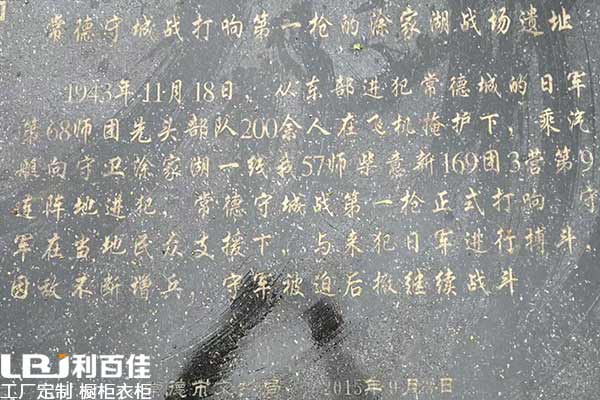 常德守城战打响第一枪的涂家湖战场遗址
1943年11月18日，从东部进犯常德城的日军
第68师团先头部队200余人在飞机掩护下，乘汽
艇向守卫涂家湖一线我57师柴意新169团3营第9
连阵地进犯，常德守城战第一枪正式打响，守
军在当地民众支援下，与来犯日军进行搏斗，
因敌不断增兵，守军被迫后撤继续战斗
常德市 局 2015年9月 日
LBJ利百佳
工厂定制 橱柜衣柜